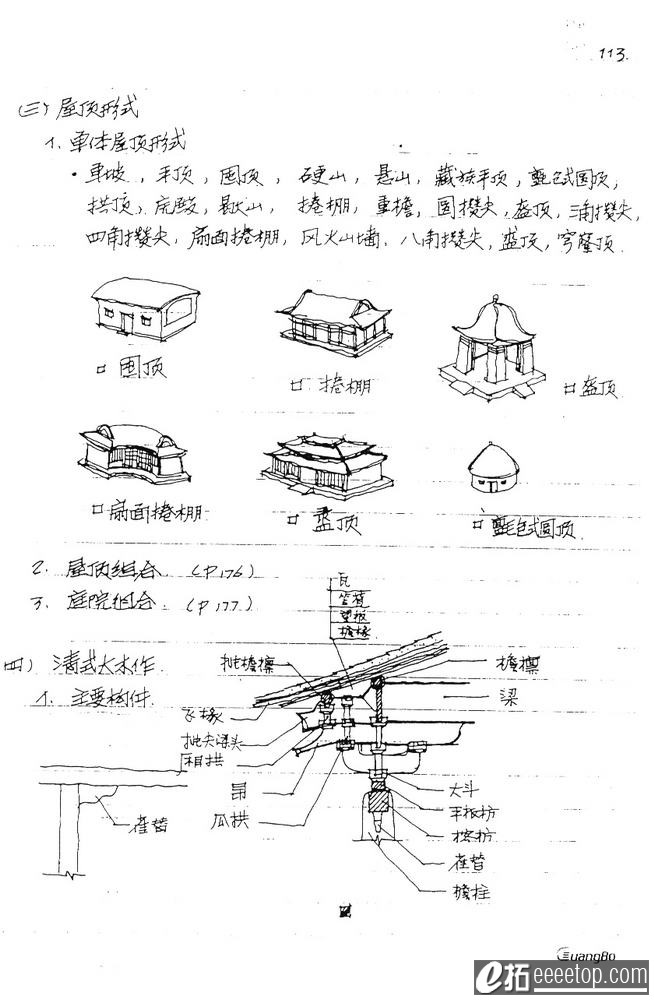 113.
(三) 屋顶形式
1. 单体屋顶形式
· 单坡, 平顶, 囤顶, 硬山, 悬山, 藏族平顶, 毡包式圆顶,
拱顶, 庑殿, 歇山, 捲棚, 重檐, 圆攒尖, 盔顶, 三角攒尖,
四角攒尖, 扇面捲棚, 风火山墙, 八角攒尖, 盝顶, 穹窿顶.
□ 囤顶
□ 捲棚
□ 盔顶
□ 扇面捲棚
□ 盝顶
□ 毡包式圆顶
2. 屋顶组合 (P176)
3. 庭院组合 (P177)
瓦
望板
檐椽
四) 清式大木作
1. 主要构件
挑檐檩
檐檩
飞椽
梁
挑尖梁头
厢拱
昂
瓜拱
大斗
平板枋
雀替
檐柱
雀替
GuangBo
e拓 eeeetop.com